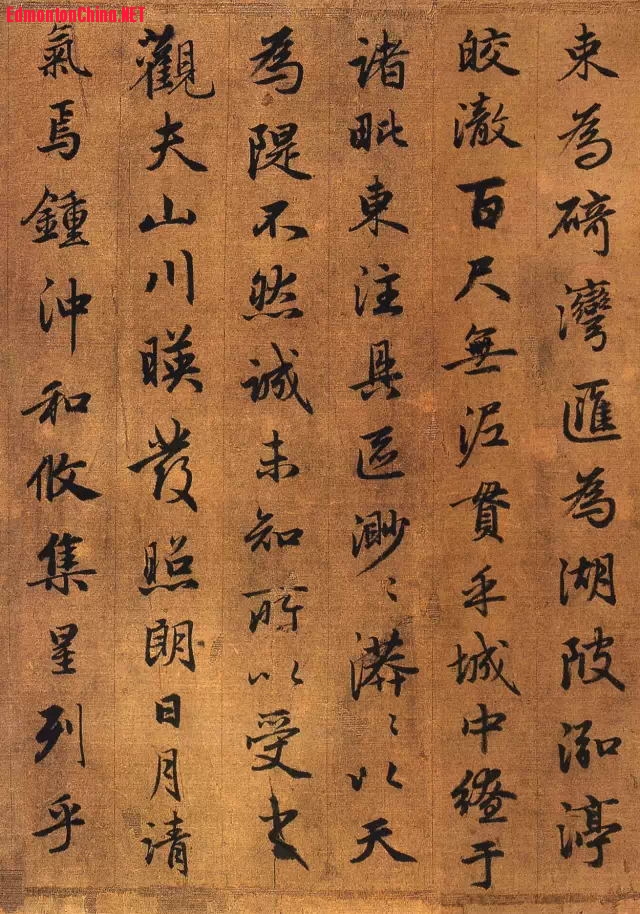 EdmontonChina.NET
束為碕灣匯為湖陂泓渟
皎澈百尺無泥貫乎城中繚于
諸毗東注具區渺〻漭〻以天
為隄不然誠未知所以受之
觀夫山川暎發照朗日月清
氣焉鍾沖和攸集星列乎